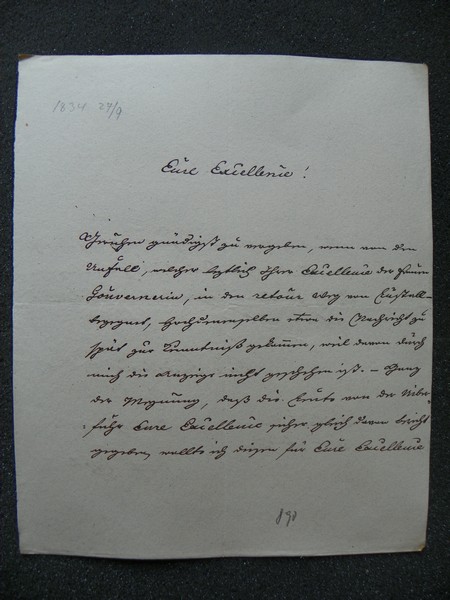 1834 27/9
Eure Excellenz!
Geruhen gnädigst zu vergeben, wenn von dem
Unfall, welcher letztlich Ihrer Excellenz der Frau
Gouvernerin, in den retour Weg von
begegnet, Hochdemselben etwa die Nachricht zu
spät zur Kenntniß gekommen, weil davon durch
mich die Anzeige nicht geschehen ist. – Ganz
der Meynung, daß die Leute von der Über-
fuhr Eure Excellenz sicher gleich davon bericht
gegeben, wollte ich diesen für Eure Excellenz